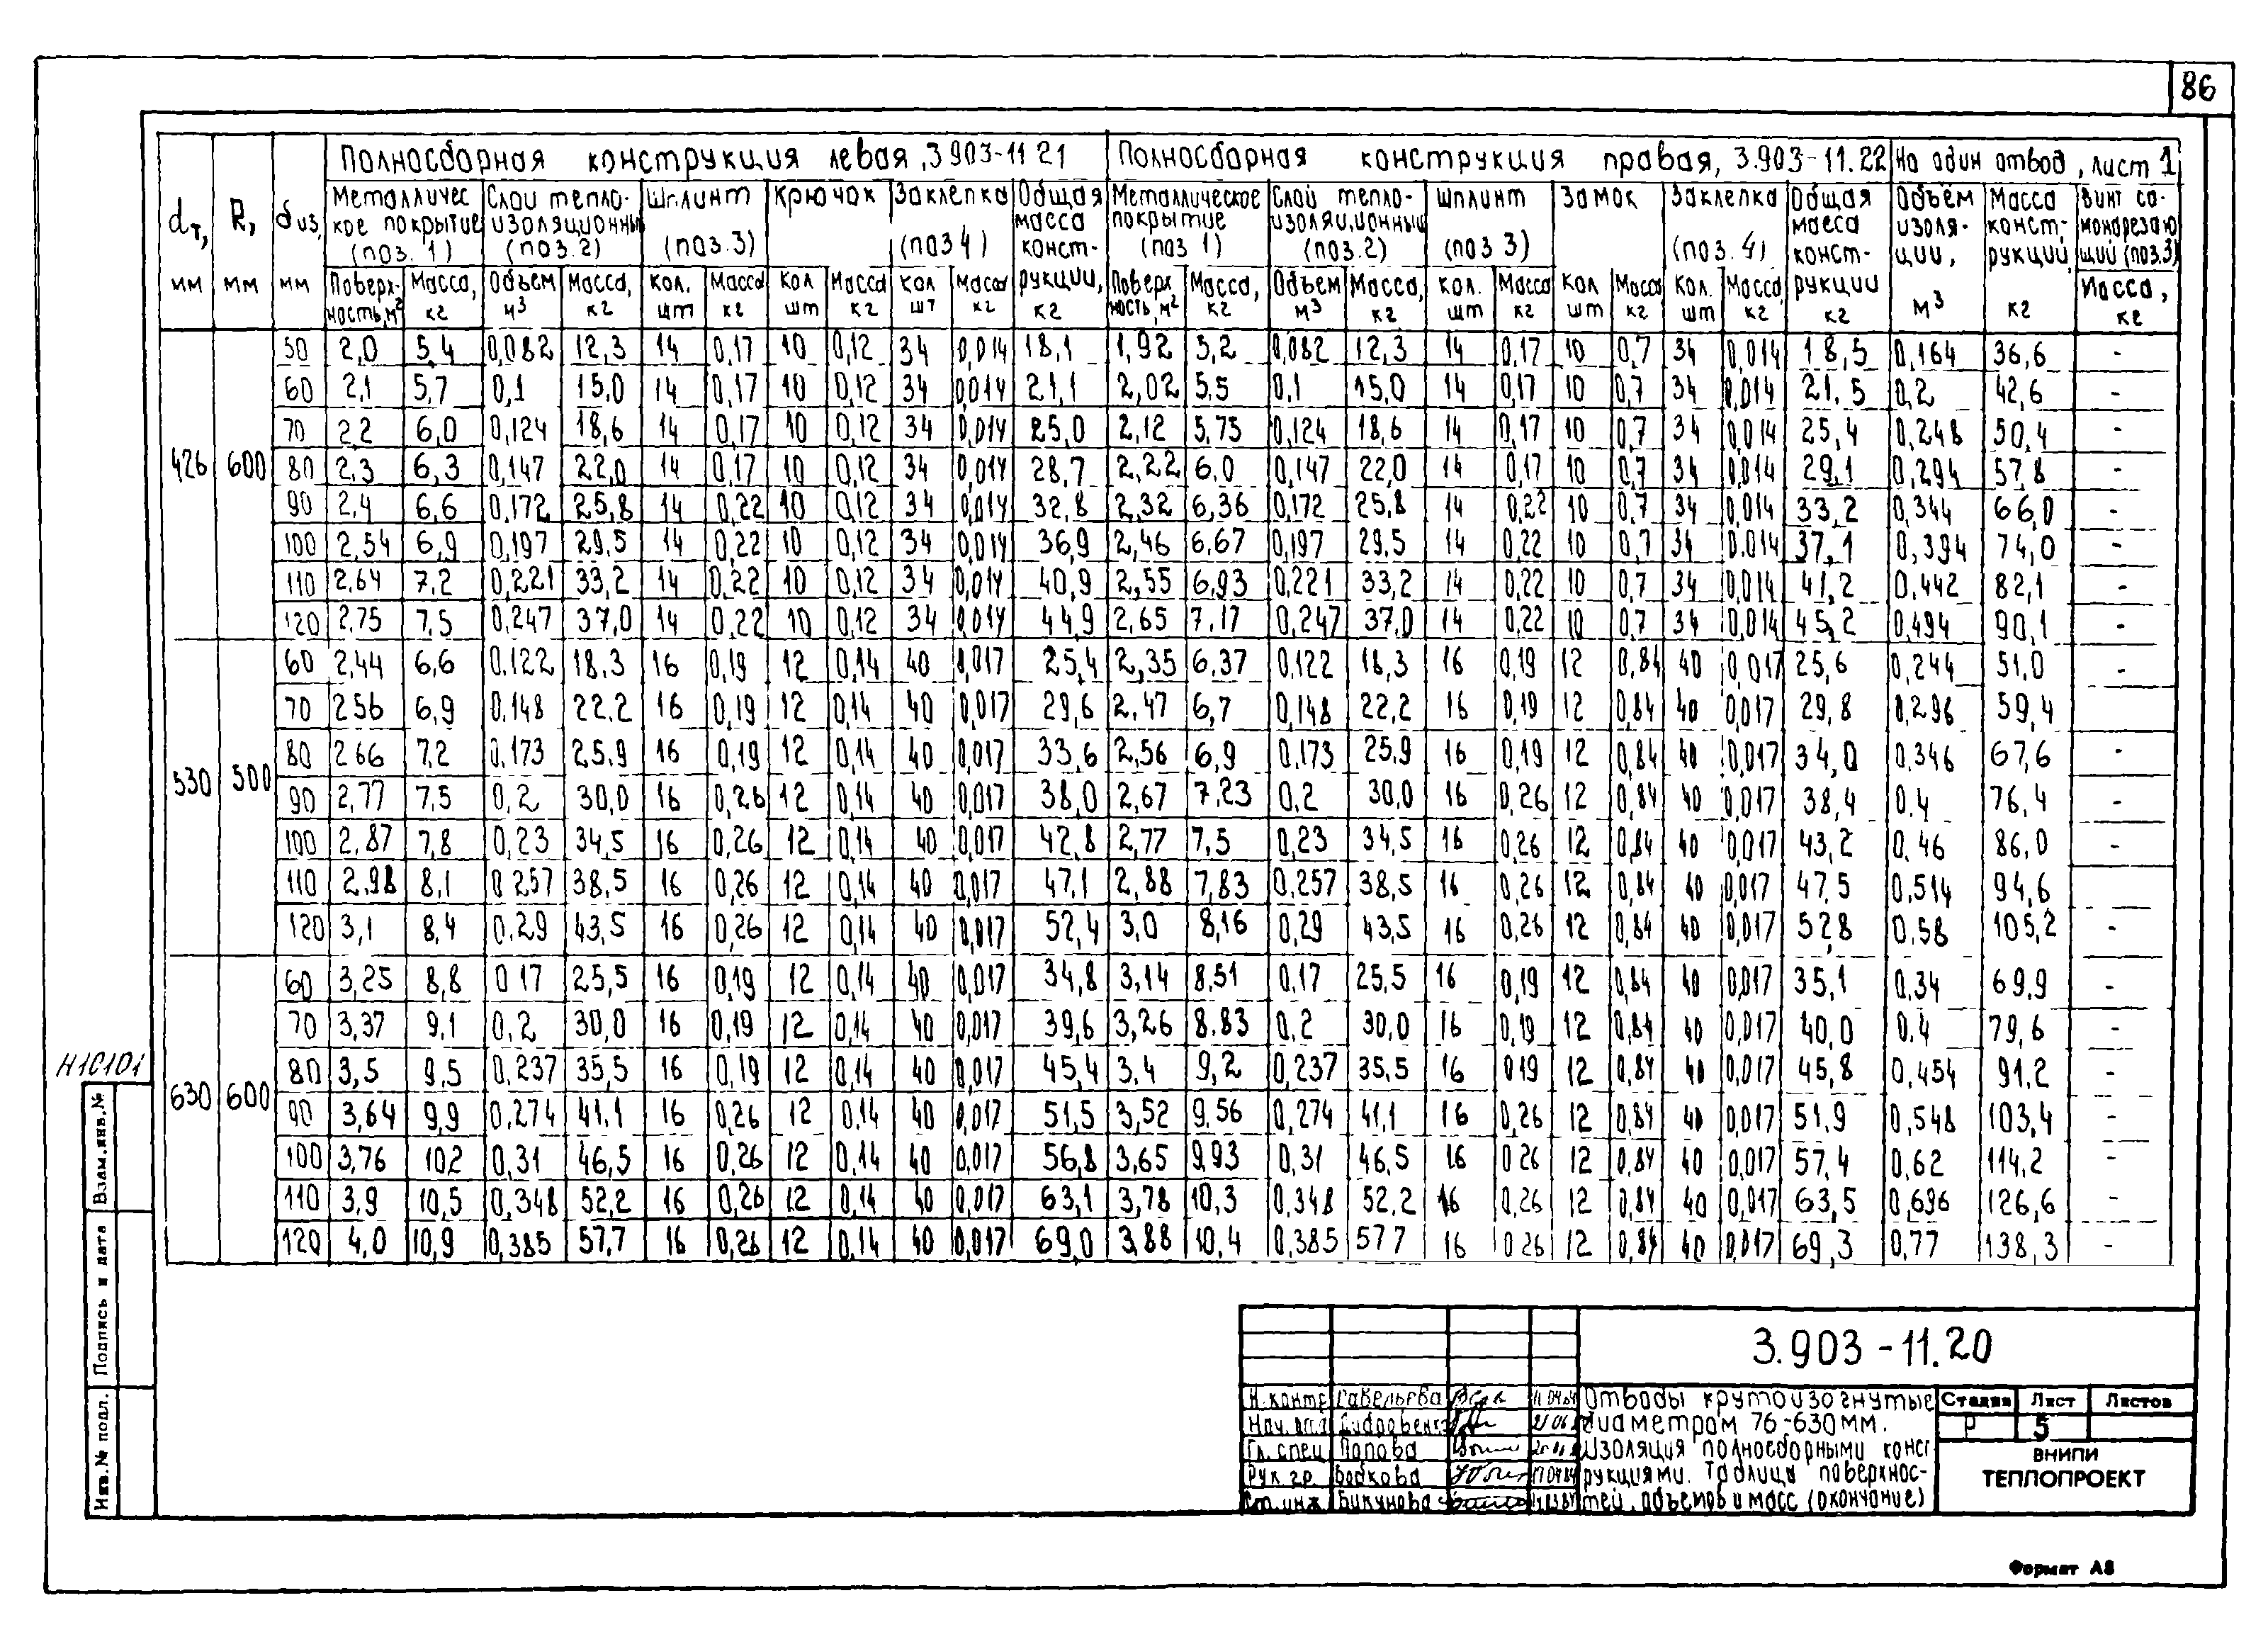 86
Полносборная конструкция левая, 3 903-11 21 Полносборная конструкция правая, 3.903-11.22 На один отвод, лист 1
dт, мм R, мм δиз, мм Металличес кое покрытие (поз. 1) Слой тепло- изоляционный (поз. 2) Шплинт (поз. 3) Крючок Заклепка (поз 4) Общая масса конст- рукции, кг Металлическое покрытие (поз 1) Слой тепло- изоляционный (поз. 2) Шплинт (поз 3) Замок Заклепка (поз. 4) Общая масса конст- рукции кг Объём изоля- ции, м³ Масса конст- рукции, кг Винт са- монарезаю щий (поз. 3)
Поверх- ность, м² Масса, кг Объем м³ Масса, кг Кол. шт Масса кг Кол шт Масса кг Кол шт Масса кг Поверх ность, м² Масса, кг Объем м³ Масса, кг Кол. шт Масса кг Кол шт Масса кг Кол. шт Масса кг Масса, кг
426 600
50 2,0 5,4 0,082 12,3 14 0,17 10 0,12 34 0,014 18,1 1,92 5,2 0,082 12,3 14 0,17 10 0,7 34 0,014 18,5 0,164 36,6 -
60 2,1 5,7 0,1 15,0 14 0,17 10 0,12 34 0,014 21,1 2,02 5,5 0,1 15,0 14 0,17 10 0,7 34 0,014 21,5 0,2 42,6 -
70 2,2 6,0 0,124 18,6 14 0,17 10 0,12 34 0,014 25,0 2,12 5,75 0,124 18,6 14 0,17 10 0,7 34 0,014 25,4 0,248 50,4 -
80 2,3 6,3 0,147 22,0 14 0,17 10 0,12 34 0,014 28,7 2,22 6,0 0,147 22,0 14 0,17 10 0,7 34 0,014 29,1 0,294 57,8 -
90 2,4 6,6 0,172 25,8 14 0,22 10 0,12 34 0,014 32,8 2,32 6,36 0,172 25,8 14 0,22 10 0,7 34 0,014 33,2 0,344 66,0 -
100 2,54 6,9 0,197 29,5 14 0,22 10 0,12 34 0,014 36,9 2,46 6,67 0,197 29,5 14 0,22 10 0,7 34 0,014 37,1 0,394 74,0 -
110 2,64 7,2 0,221 33,2 14 0,22 10 0,12 34 0,014 40,9 2,55 6,93 0,221 33,2 14 0,22 10 0,7 34 0,014 41,2 0,442 82,1 -
120 2,75 7,5 0,247 37,0 14 0,22 10 0,12 34 0,014 44,9 2,65 7,17 0,247 37,0 14 0,22 10 0,7 34 0,014 45,2 0,494 90,1 -
530 500
60 2,44 6,6 0,122 18,3 16 0,19 12 0,14 40 0,017 25,4 2,35 6,37 0,122 18,3 16 0,19 12 0,84 40 0,017 25,6 0,244 51,0 -
70 2 56 6,9 0,148 22,2 16 0,19 12 0,14 40 0,017 29,6 2,47 6,7 0,148 22,2 16 0,19 12 0,84 40 0,017 29,8 0,296 59,4 -
80 2 66 7,2 0,173 25,9 16 0,19 12 0,14 40 0,017 33,6 2,56 6,9 0,173 25,9 16 0,19 12 0,84 40 0,017 34,0 0,346 67,6 -
90 2,77 7,5 0,2 30,0 16 0,26 12 0,14 40 0,017 38,0 2,67 7,23 0,2 30,0 16 0,26 12 0,84 40 0,017 38,4 0,4 76,4 -
100 2,87 7,8 0,23 34,5 16 0,26 12 0,14 40 0,017 42,8 2,77 7,5 0,23 34,5 16 0,26 12 0,84 40 0,017 43,2 0,46 86,0 -
110 2,98 8,1 0 257 38,5 16 0,26 12 0,14 40 0,017 47,1 2,88 7,83 0,257 38,5 16 0,26 12 0,84 40 0,017 47,5 0,514 94,6 -
120 3,1 8,4 0,29 43,5 16 0,26 12 0,14 40 0,017 52,4 3,0 8,16 0,29 43,5 16 0,26 12 0,84 40 0,017 52,8 0,58 105,2 -
630 600
60 3,25 8,8 0 17 25,5 16 0,19 12 0,14 40 0,017 34,8 3,14 8,51 0,17 25,5 16 0,19 12 0,84 40 0,017 35,1 0,34 69,9 -
70 3,37 9,1 0,2 30,0 16 0,19 12 0,14 40 0,017 39,6 3,26 8,83 0,2 30,0 16 0,19 12 0,84 40 0,017 40,0 0,4 79,6 -
80 3,5 9,5 0,237 35,5 16 0,19 12 0,14 40 0,017 45,4 3,4 9,2 0,237 35,5 16 0 19 12 0,84 40 0,017 45,8 0,454 91,2 -
90 3,64 9,9 0,274 41,1 16 0,26 12 0,14 40 0,017 51,5 3,52 9,56 0,274 41,1 16 0,26 12 0,84 40 0,017 51,9 0,548 103,4 -
100 3,76 10,2 0,31 46,5 16 0,26 12 0,14 40 0,017 56,8 3,65 9,93 0,31 46,5 16 0 26 12 0,84 40 0,017 57,4 0,62 114,2 -
110 3,9 10,5 0,348 52,2 16 0,26 12 0,14 40 0,017 63,1 3,78 10,3 0,348 52,2 16 0,26 12 0,84 40 0,017 63,5 0,696 126,6 -
120 4,0 10,9 0,385 57,7 16 0,26 12 0,14 40 0,017 69,0 3,88 10,4 0,385 57 7 16 0 26 12 0,84 40 0,017 69,3 0,77 138,3 -
Н10101
Взам.инв.№
Подпись и дата
Инв.№ подл.
3.903-11.20
Н.контр Савельева
Нач. отд
Гл. спец Попова
Рук. гр. Бобкова
Ст. инж Бикунова
Отводы крутоизогнутые
диаметром 76-630 мм.
Изоляция полносборными конст
рукциями. Таблица поверхнос-
тей, объемов и масс (окончание)
Стадия Лист Листов
Р 5
ВНИПИ
ТЕПЛОПРОЕКТ
Формат А8